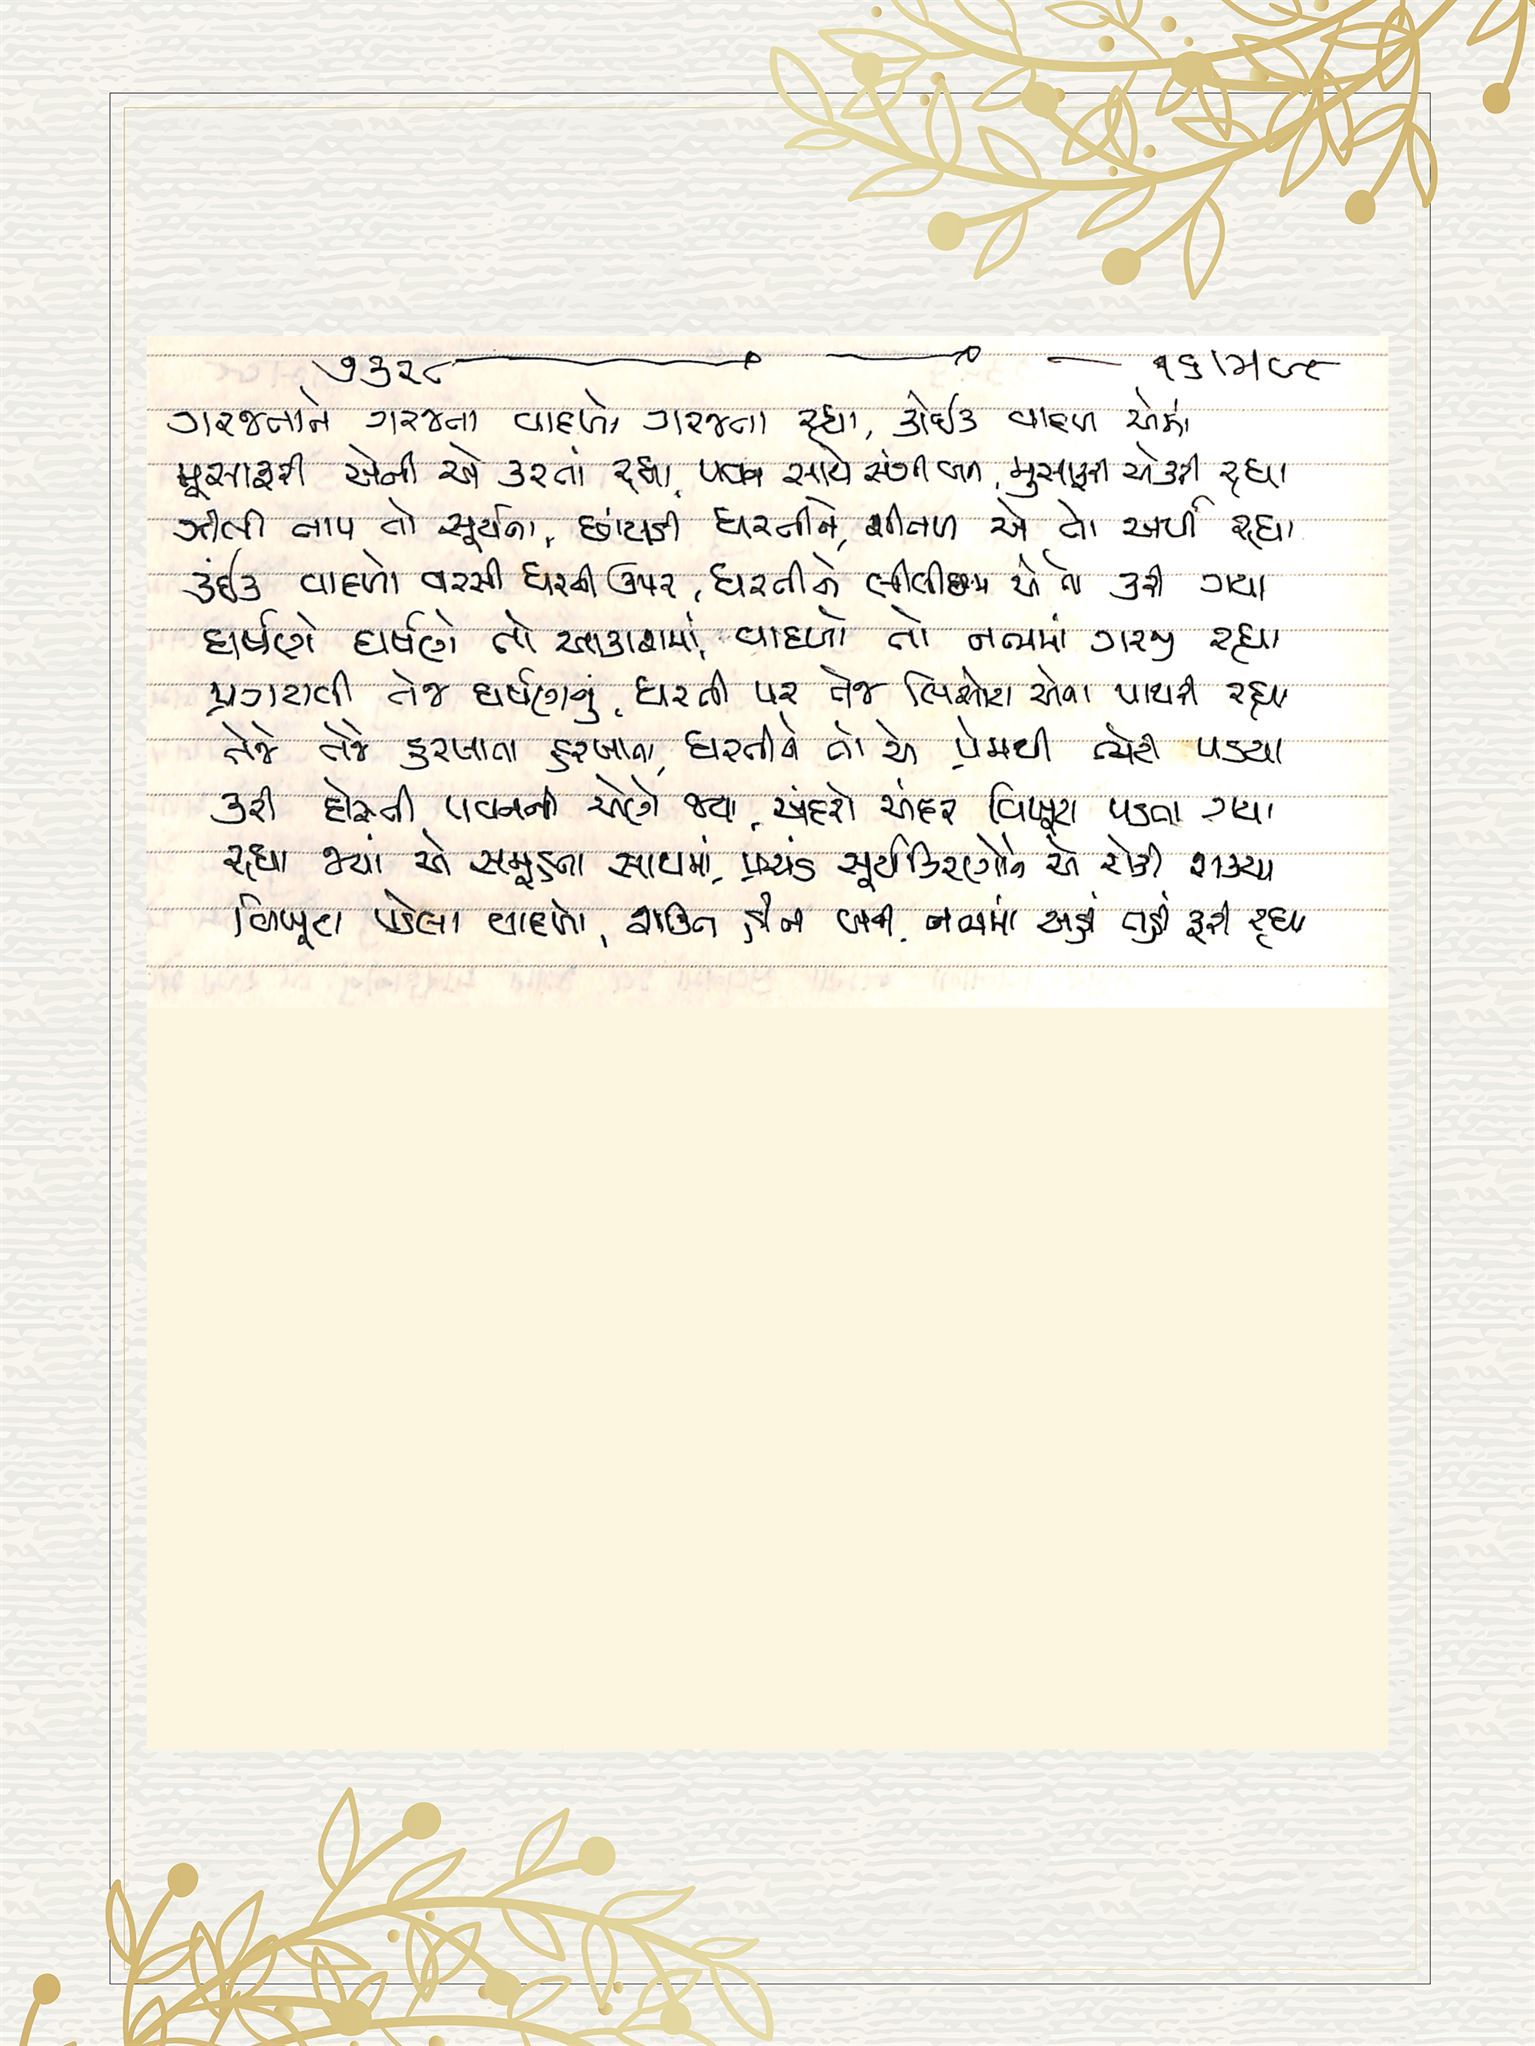 ૭૩૨૮
ગરજતાને ગરજતા વાદળો ગરજતા રહ્યા, કોઈક વાદળ એમાં
મૂસાફરી એની એ કરતાં રહ્યા, પવન સાથે સંગી બન, મુસાફરી એ કરી રહ્યા
ઝીલી તાપ તો સૂર્યના, છાંયડી ધરતીને, શીતળ એ તો અર્પી રહ્યા
કંઈક વાદળો વરસી ધરતી ઉપર, ધરતીને લીલીછમ એ તો કરી ગયા
ઘર્ષણે ઘર્ષણે તો આકાશમાં, વાદળો તો નભમાં ગરજી રહ્યા
પ્રગટાવી તેજ ઘર્ષણનું, ધરતી પર તેજ લિસોટા એના પાથરી રહ્યા
તેજે તેજે હરખાતા હરખાતા, ધરતીને તો એ પ્રેમથી ભેટી પડયા
કરી દોસ્તી પવનની એણે જ્યાં, અંદરો અંદર વિખૂટા પડતા ગયા
રહ્યા જ્યાં એ સમૂહના સાથમાં, પ્રચંડ સૂર્યકિરણોને એ રોકી શક્યા
વિખૂટા પડેલા વાદળો, શક્તિ હીન બની, નભમાં અહીં તહીં ફરી રહ્યા